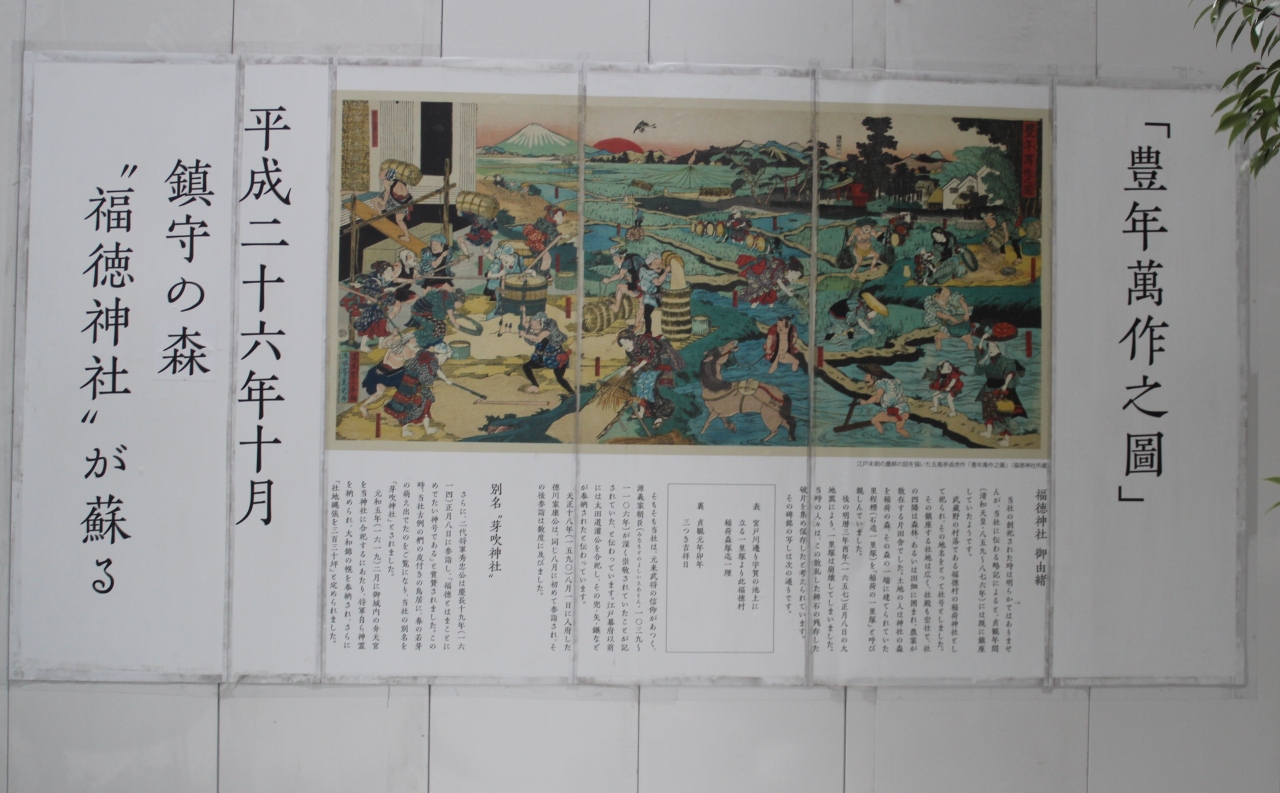 「豊年萬作之圖」
江戸末期の農耕の図を描いた五風亭貞虎作「豊年萬作之圖」(福徳神社所蔵)
福徳神社 御由緒
当社の創祀された時は明らかではありませ
んが、当社に伝わる略記によると、貞観年間
(清和天皇・八五九〜八七六年)には既に鎮座
していたようです。
武蔵野の村落である福徳村の稲荷神社とし
て祀られ、その地名をとって社号としました。
その鎮座する社地は広く、社殿も宏壮で、社
の四隣は森林、あるいは田畑に囲まれ、農家が
散在する片田舎でした。土地の人は神社の森
を稲荷の森、その森の一端に建てられていた
里程標(石造一里塚)を「稲荷の一里塚」と呼び
親しんでいました。
後の明暦三年酉年(一六五七)正月八日の大
地震により、一里塚は崩壊してしまいました。
当時の人々は、この散乱した碑石の残存した
破片を集め保存したと考えられています。
その碑銘の写しは次の通りです。
表 宮戸川邊り宇賀の池上に
立る一里塚より此福徳村
稲荷森塚迄一理
裏 貞観元年卯年
三つき吉祥日
そもそも当社は、元来武将の信仰があつく、
源義家朝臣(みなもとのよしいえあそん、一〇三九〜
一一〇六年)が深く崇敬されていたことが記
されていた、と伝わっています。江戸幕府以前
には太田道灌公を合祀し、その兜・矢・鏃など
が奉納されたと伝わっています。
天正十八年(一五九〇)八月一日に入府した
徳川家康公は、同じ八月に初めて参詣され、そ
の後参詣は数度に及びました。
別名〝芽吹神社〟
さらに、二代将軍秀忠公は慶長十九年(一六
一四)正月八日に参詣し、「福徳とはまことに
めでたい神号である」と賞賛されました。この
時、当社古例の椚の皮付きの鳥居に、春の若芽
の萌え出でたのをご覧になり、当社の別名を
「芽吹神社」とされました。
元和五年(一六一九)二月に御城内の弁天宮
を当神社に合祀するにあたり、将軍自ら神霊
を納められ、大和錦の幌を奉納され、さらに
「社地縄張を三百三十坪」と定められました。
平成二十六年十月
鎮守の森
〝福徳神社〟が蘇る